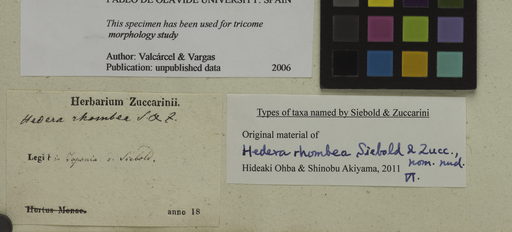 PABLO DE OLAVIDE UNIVERSITY. SPAIN
This specimen has been used for tricome
morphology study
Author: Valcárcel & Vargas
Publication: unpublished data 2006
Herbarium Zuccarinii.
Hedera rhombea S & Z.
Legit in Japonia v. Siebold.
Hortus Monac.
anno 18
Types of taxa named by Siebold & Zuccarini
Original material of
Hedera rhombea Siebold & Zucc.,
nom. nud.
Hideaki Ohba & Shinobu Akiyama, 2011